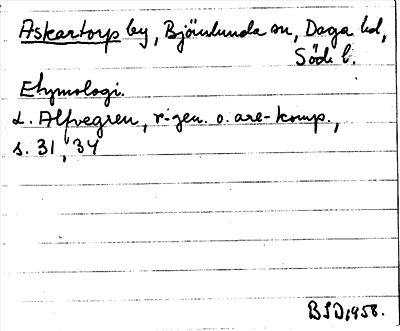 Askartorp by, Björnlunda sn, Daga hd,
Söd. l.
Etymologi.
L. Alfvegren, r-gen. o. are-komp.,
s. 31, 34
BSD, 1958.